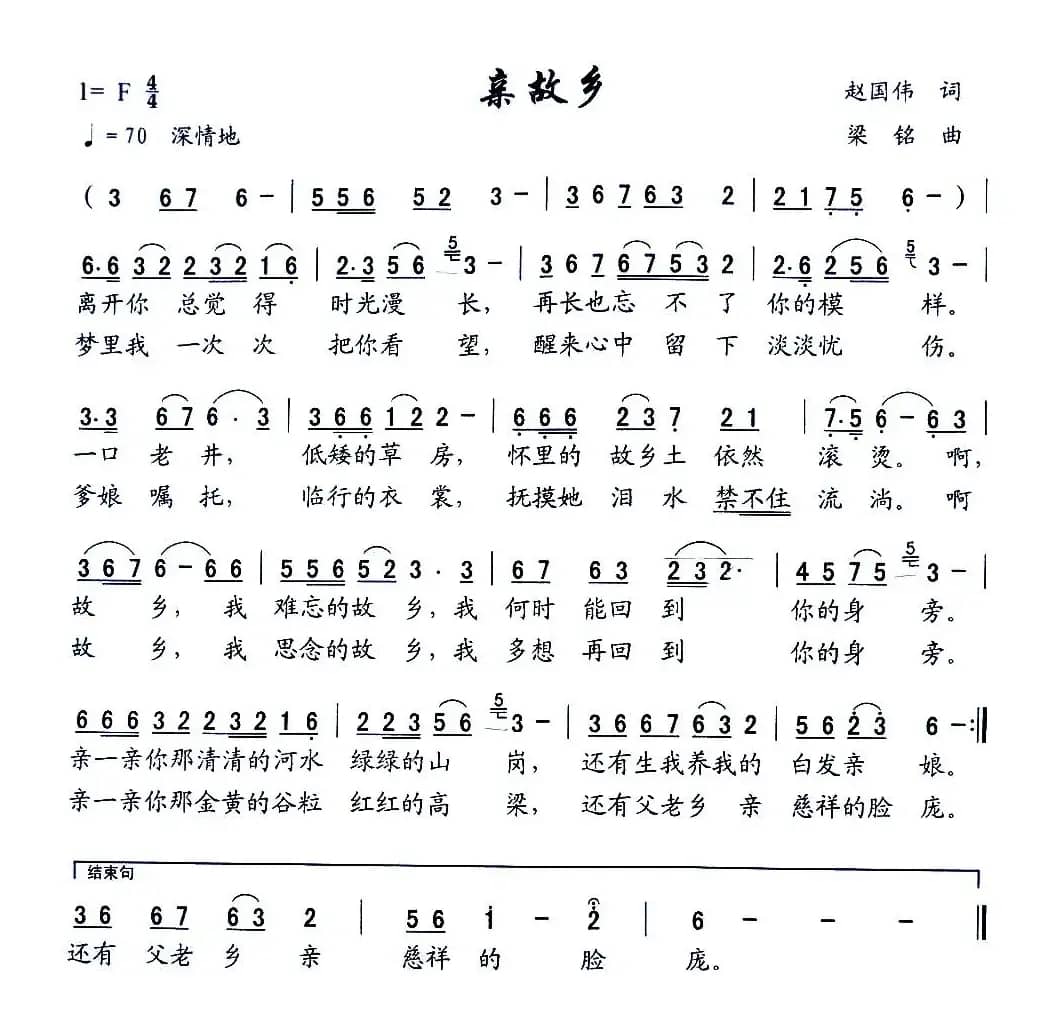 1= F 4/4
亲故乡
赵国伟 词
♩= 70 深情地
梁铭 曲
( 3 67 6 - | 556 52 3 - | 3 6 7 63 2 | 2175 6 - ) |
6·6 32 232 16 | 2·3 56 5 3 - | 3 6 7 67532 | 2·6 256 5 3 - |
离开你 总觉 得 时光漫 长, 再长也忘 不 了 你的模 样。
梦里我 一次 次 把你看 望, 醒来心中 留 下 淡淡忧 伤。
3·3 67 6 · 3 | 366 122 - | 666 237 21 | 7·5 6 - 63 |
一口 老 井, 低矮的草 房, 怀里的 故乡土 依然 滚 烫。 啊,
爹娘 嘱 托, 临行的衣 裳, 抚摸她 泪 水 禁不住 流 淌。 啊
367 6 - 66 | 556 52 3 · 3 | 67 63 232· | 4575 5 3 - |
故 乡, 我 难忘的故 乡, 我 何时 能回 到 你的身 旁。
故 乡, 我 思念的故 乡, 我 多想 再回 到 你的身 旁。
666 32 232 16 | 223 56 5 3 - | 36 67 63 2 | 56 23 6 - :||
亲一亲你那清清的河水 绿绿的山 岗, 还有生我养我的 白发亲 娘。
亲一亲你那金黄的谷粒 红红的高 粱, 还有父老乡 亲 慈祥的脸 庞。
结束句
36 67 63 2 | 56 i - 2 | 6 - - - ||
还有 父老 乡 亲 慈祥 的 脸 庞。